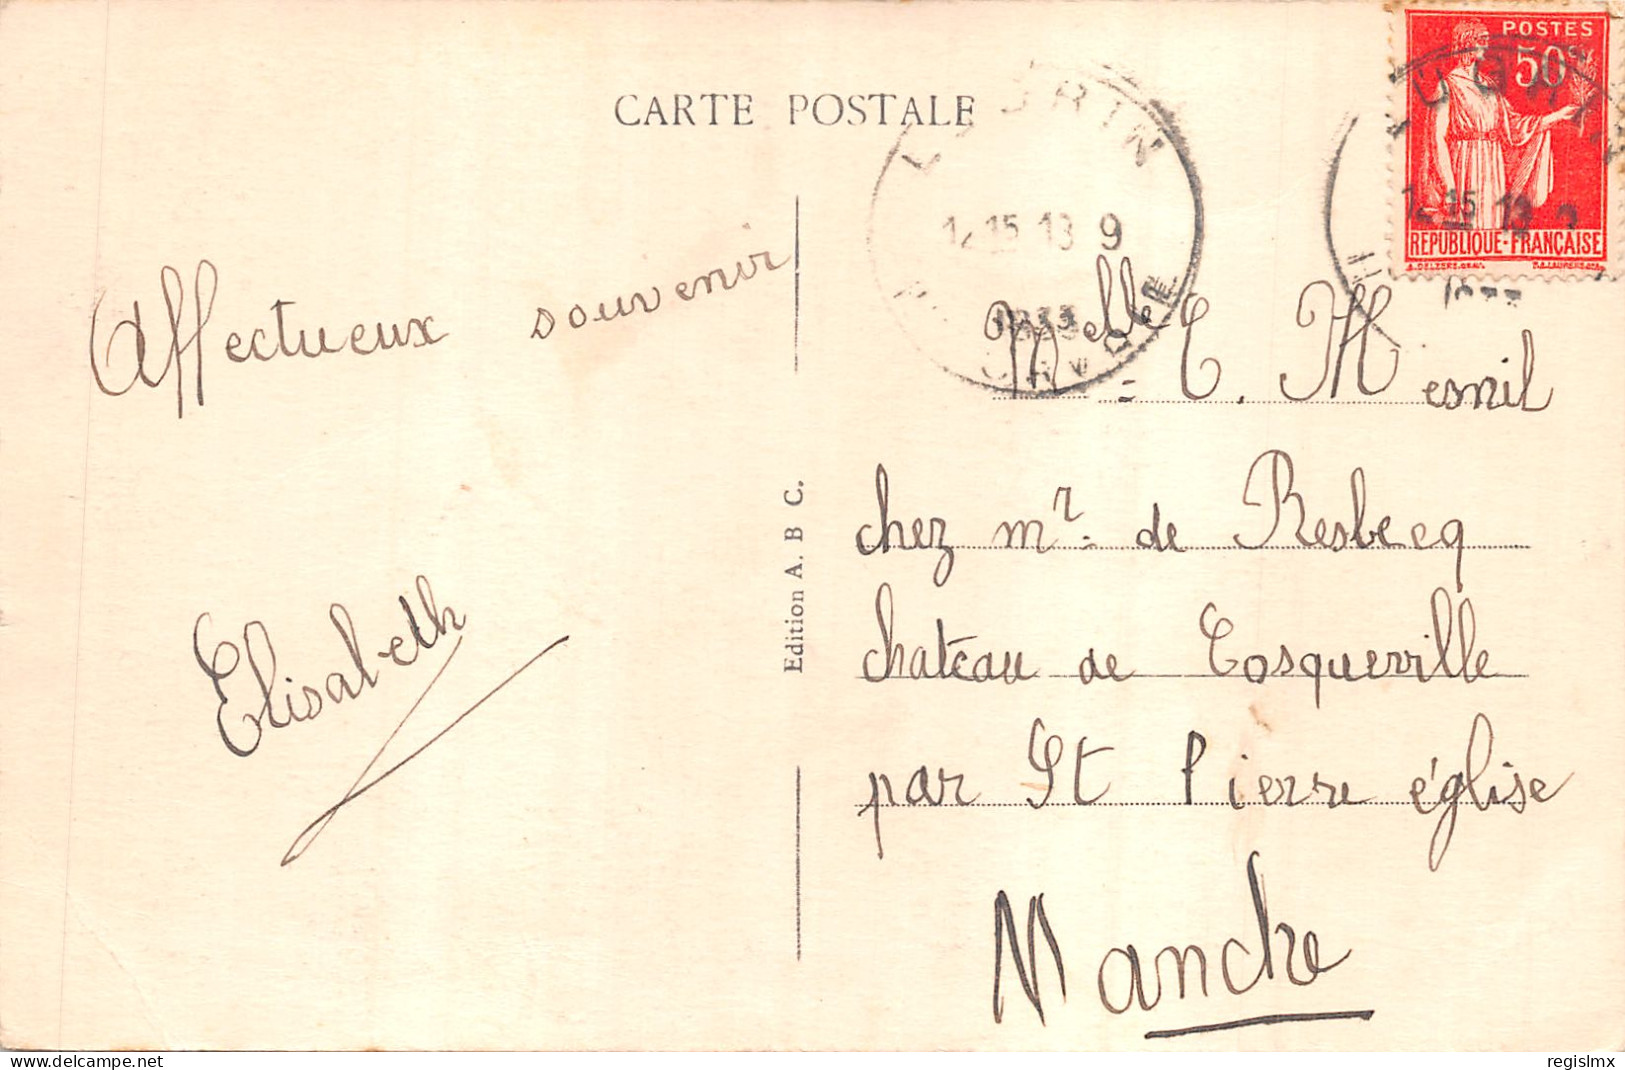 CARTE POSTALE
POSTES
50c
REPUBLIQUE-FRANÇAISE
12 15 13 9
1933
Affectueux souvenir
Elisabeth
Edition A. B C.
Melle E. Mesnil
chez mr. de Resbecq
chateau de Cosqueville
par St Pierre église
Manche
www.delcampe.net
regislmx